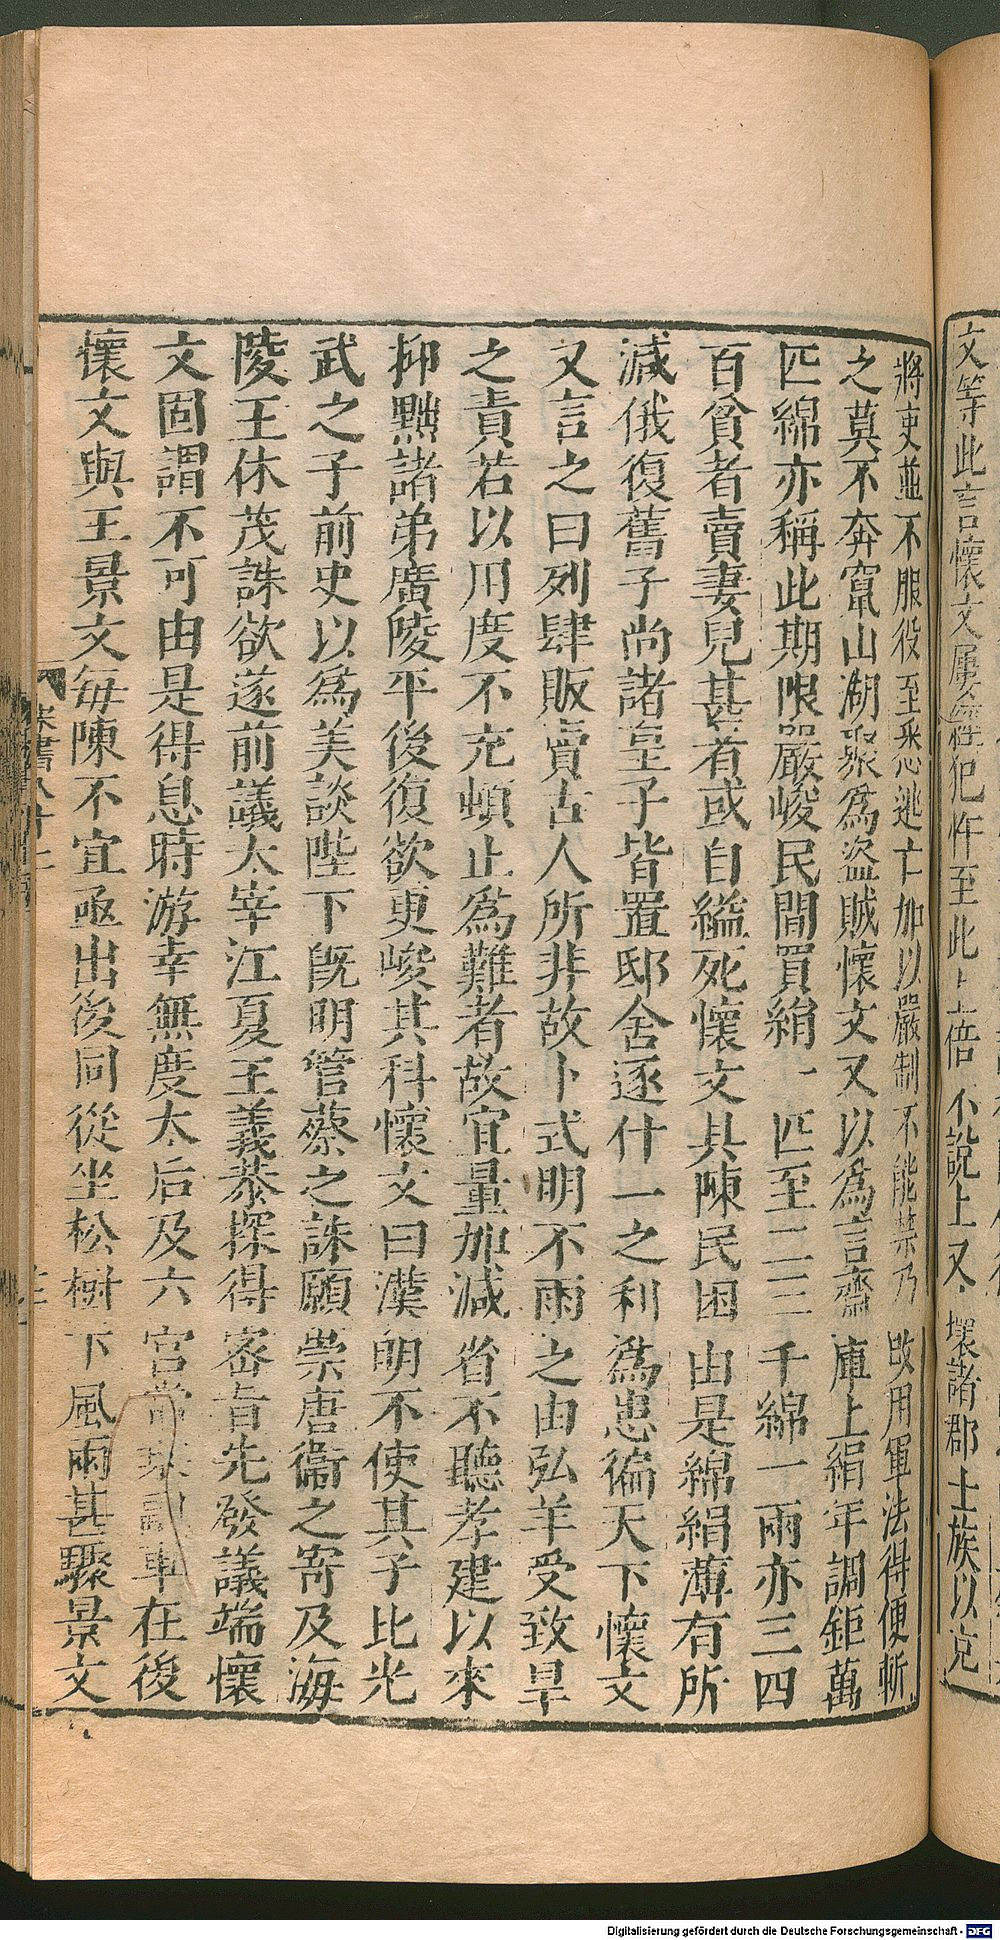 文等此言懷文屢經犯忤至此上倍不說上又壞諸郡士族以充
將吏並不服役至悉逃亡加以嚴制不能禁乃改用軍法得便斬
之莫不奔竄山湖聚爲盜賊懷文又以爲言齋庫上絹年調鉅萬
匹綿亦稱此期限嚴峻民間買絹一匹至二三千綿一兩亦三四
百貧者賣妻兒甚者或自縊死懷文具陳民困由是綿絹薄有所
減俄復舊子尚諸皇子皆置邸舍逐什一之利爲患徧天下懷文
又言之曰列肆販賣古人所非故卜式明不雨之由弘羊受致旱
之責若以用度不充頓止爲難者故宜量加減省不聽孝建以來
抑黜諸弟廣陵平後復欲更峻其科懷文曰漢明不使其子比光
武之子前史以爲美談陛下旣明管蔡之誅願崇唐衞之寄及海
陵王休茂誅欲遂前議太宰江夏王義恭探得密旨先發議端懷
文固謂不可由是得息時游幸無度太后及六宮常乘副車在後
懷文與王景文每陳不宜亟出後同從坐松樹下風雨甚驟景文
宋書八十二
Digitalisierung gefördert durch die Deutsche Forschungsgemeinschaft - DFG